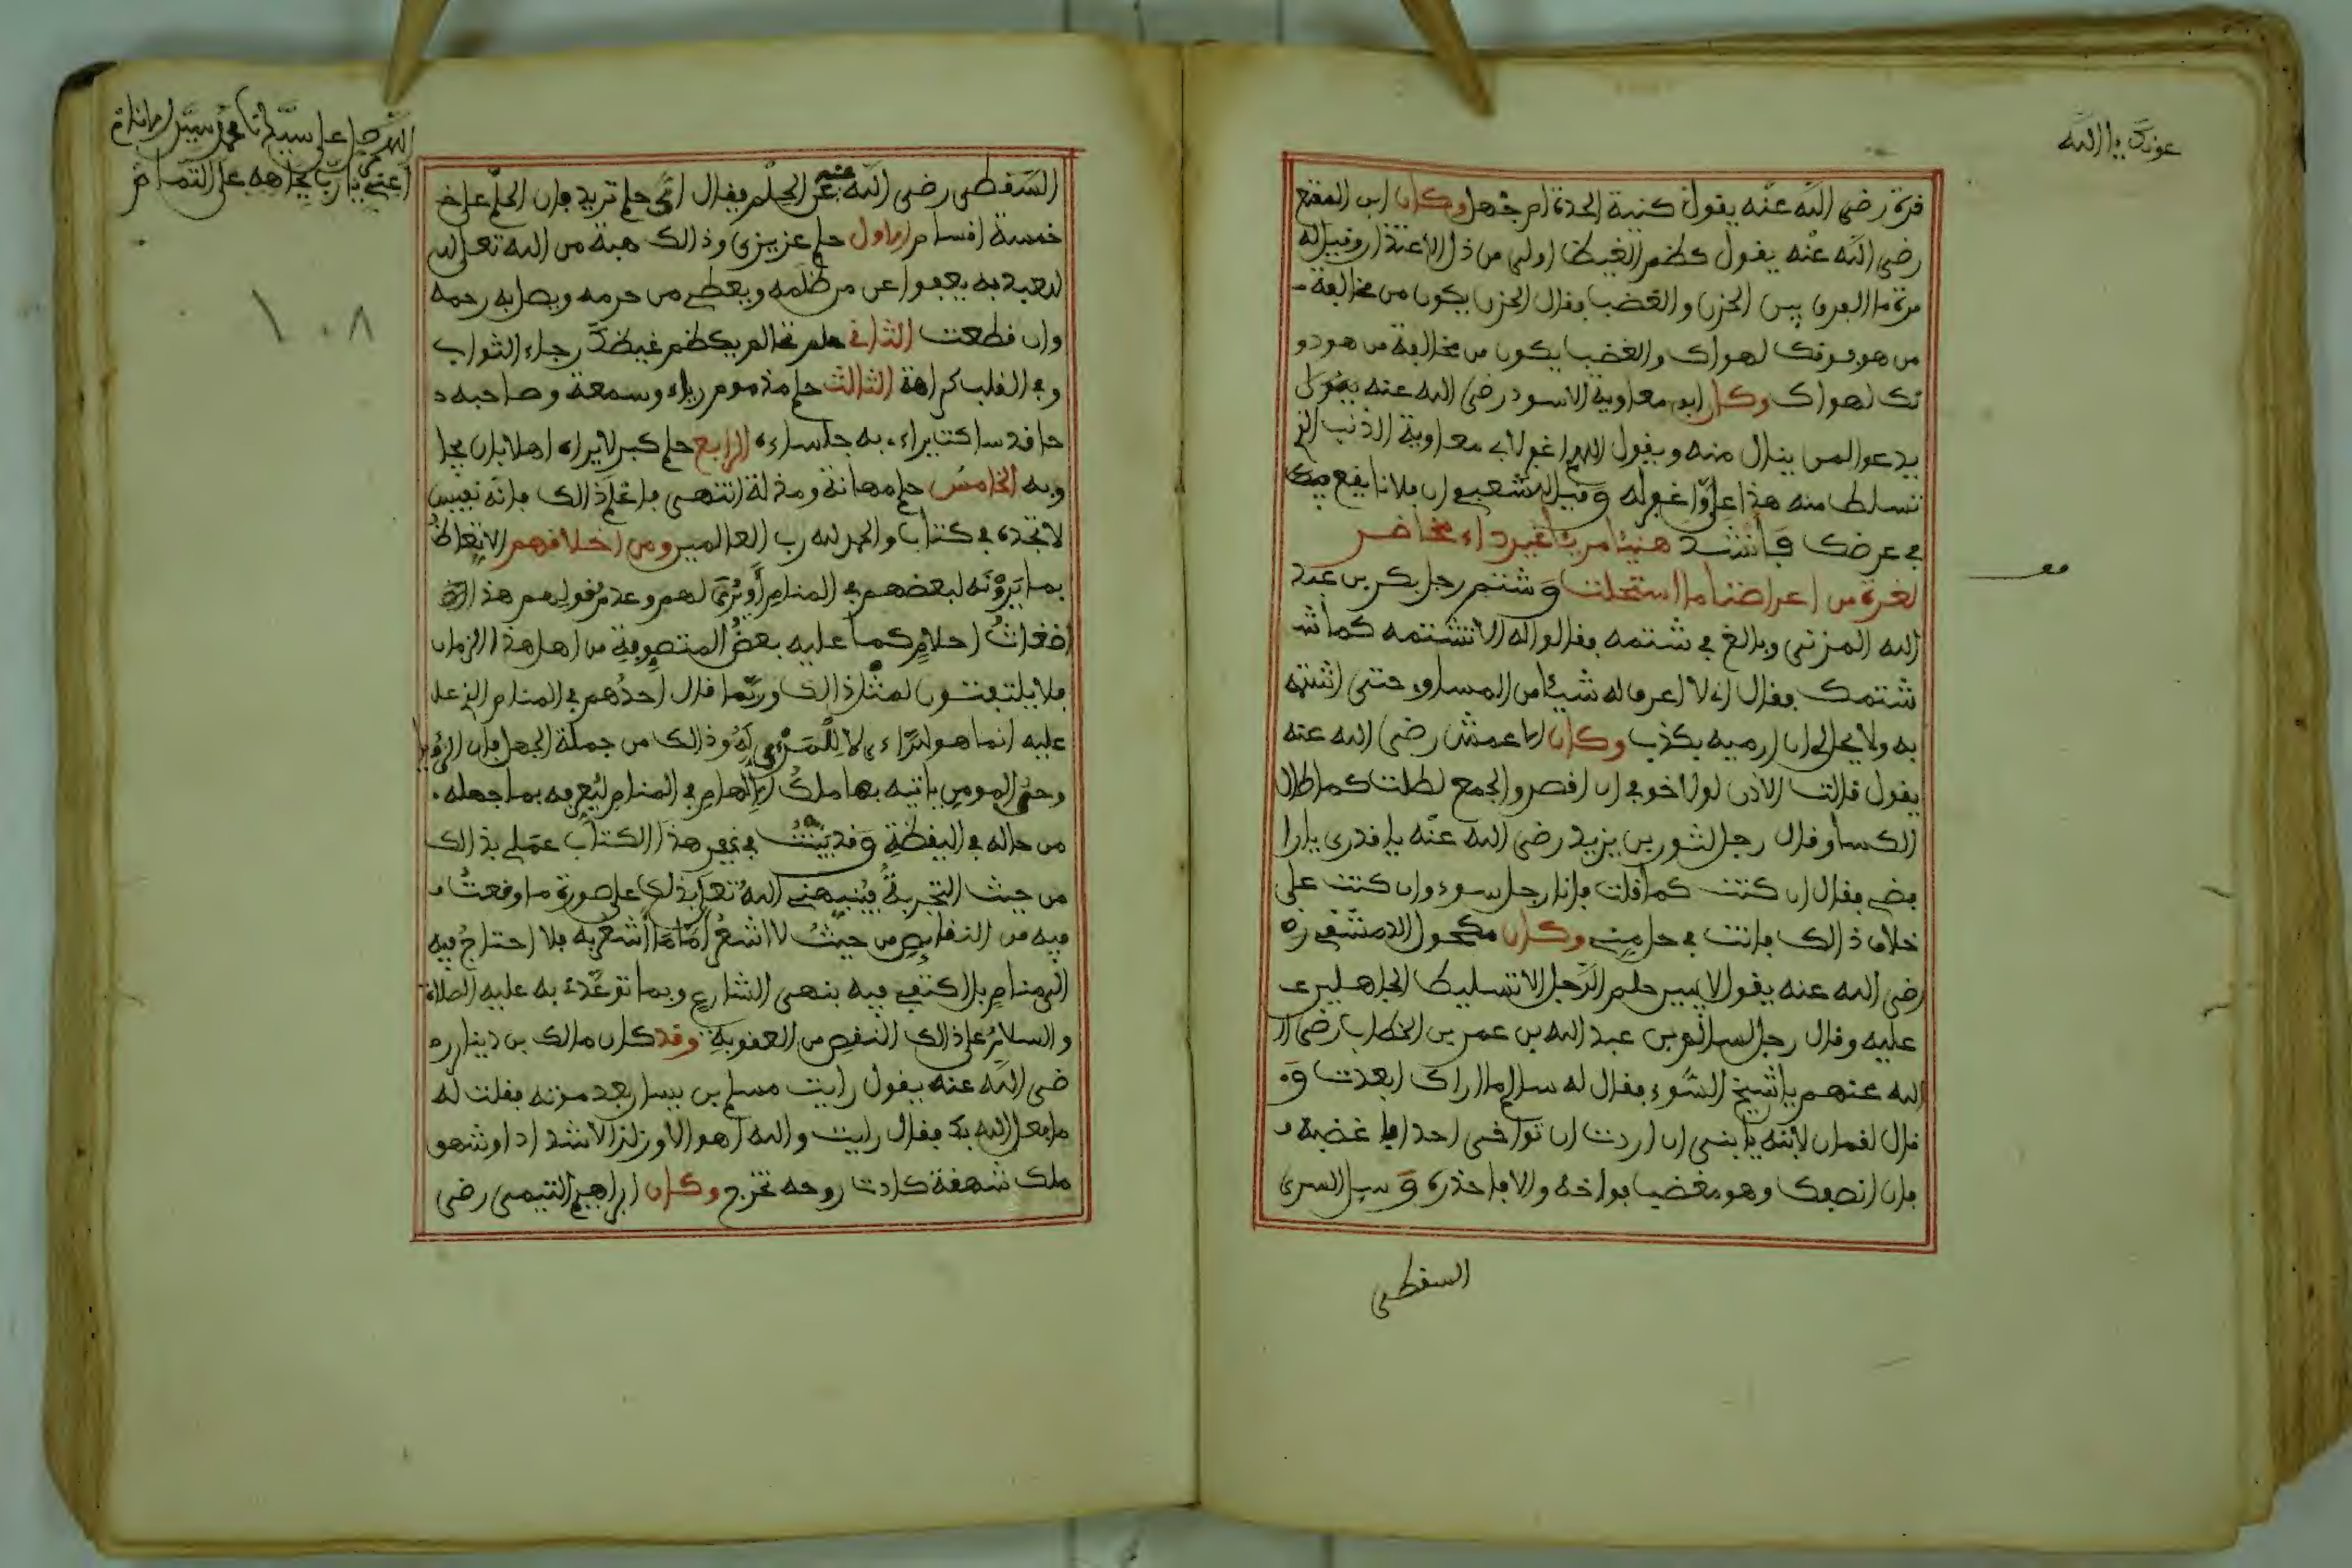 عونك يا الله
قرة رضي الله عنه يقول كنية الحدة ام جهل وكان ابن المقفع
رضي الله عنه يقول كظم الغيظ اولى من ذل الاعتذار وقيل له
مرة ما الفرق بين الحزن والغضب فقال الحزن يكون من مخالفة
من هو فوقك لهواك والغضب يكون من مخالفة من هو دو
نك لهواك وكان ابو معاوية الاسود رضي الله عنه يقول
يدعو لمن ينال منه ويقول اللهم اغفر لابي معاوية الذنب الذي
تسلط منه هذا علي واغفر له وقيل للشعبي ان فلانا يقع فيك
في عرضك فأنشد هنيئا مريئا غير داء مخاضر
لغرة من اعراضنا ما استحلت وشتم رجل بكر بن عبد
الله المزني وبالغ في شتمه فقالوا له الا تشتمه كما شـ
شتمك فقال اني لا اعرف له شيئا من المساوء حتى اشتمه
به ولا يحل لي ان ارميه بكذب وكان الاعمش رضي الله عنه
يقول قالت الاذن لولا خوفي ان اقصر والجمع لطلت كما طال
الكسا وقال رجل لثور بن يزيد رضي الله عنه يا قدري يا را
فضي فقال ان كنت كما قلت فانا رجل سوء وان كنت على
خلاف ذالك فانت في حل مني وكان مكحول الدمشقي ره
رضي الله عنه يقول لا يبين حلم الرجل الا تسليط الجاهلين
عليه وقال رجل لسالم بن عبد الله بن عمر بن الخطاب رضي ا
الله عنهم يا شيخ السوء فقال له سالم ما اراك ابعدت و
قال لقمان لابنه يا بني ان اردت ان تواخي احدا فاغضبه
فان انصفك وهو مغضب فواخه والا فاحذره وسيل السري
السقطي
معـ
اللهم صل على سيدنا محمد سيد الانام
اعني يا رب بجاهه على التمام
١٠٨
السقطي رضي الله عنه عن الحلم فقال اي حلم تريد فان الحلم على خـ
خمسة اقسام الاول حلم عزيزي وذالك هبة من الله تعالى
للعبد به يعفوا عن من ظلمه ويعطي من حرمه ويصل به رحمه
وان قطعت الثاني حلم تحالم يكظم غيظك رجاء الثواب
وفي القلب كراهة الثالث حلم مذموم رياء وسمعة وصاحبه
حاقد ساكت يراء به جلساءه الرابع حلم كبر لا يراه اهلا بان يجا
وبه الخامس حلم مهانة ومذلة انتهى فاعلم ذالك فانه نفيس
لا تجده في كتاب والحمد لله رب العالمين ومن اخلاقهم الاتعاظ
بما يرونه لبعضهم في المنام أو يرى لهم وعدم قولهم هذا
اضغاث احلام كما عليه بعض المتصوفة من اهل هذا الزمان
فلا يلتفتون لمثل ذالك وربما قال احدهم في المنام الذي عد
عليه انما هو للراءي لا للمرءي له وذالك من جملة الجهل فان الرؤيا
وحي المومن ياتيه بها ملك الالهام في المنام ليعرفه بما جهله
من حاله في اليقظة وقد بينت في غير هذا الكتاب عملي بذالك
من حيث التجربة فينبهني الله تعالى بذلك على صورة ما وقعت
فيه من النقايص من حيث لا اشعر أما ما أشعر به فلا احتاج فيه
الى منام بل اكتفي فيه بنهي الشارع وبما توعد به عليه الصلاة
والسلام على ذالك النقص من العقوبة وقد كان مالك بن دينار ر
ضي الله عنه يقول رايت مسلم بن يسار بعد موته فقلت له
ما فعل الله بك فقال رايت والله اهوالا وزلازلا شدادا وشهو
ملك شهقة كادت روحه تخرج وكان ابراهيم التيمي رضي